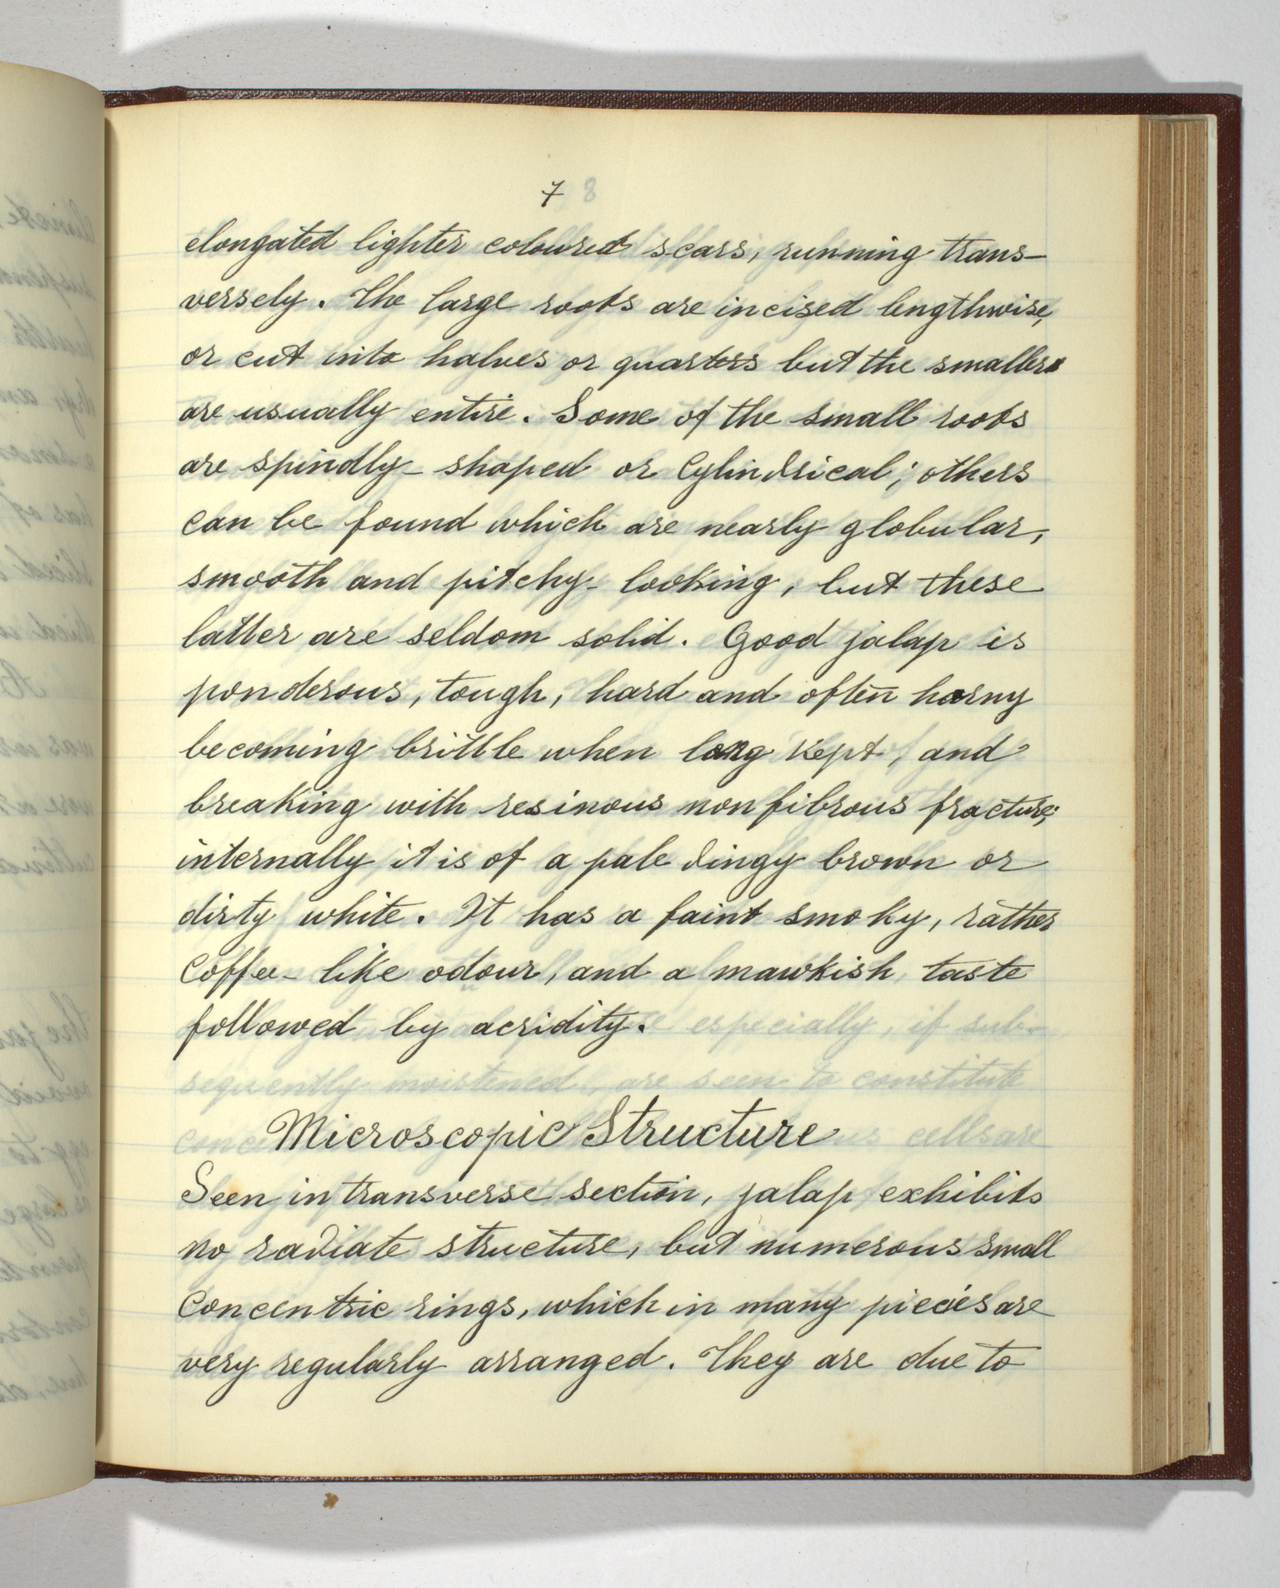 7 8
elongated lighter coloured scars, running trans-
versely. The large roots are incised lengthwise,
or cut into halves or quarters but the smaller
are usually entire. Some of the small roots
are spindly-shaped or Cylindrical; others
can be found which are nearly globular,
smooth and pitchy-looking, but these
latter are seldom solid. Good jalap is
ponderous, tough, hard and often horny
becoming brittle when long kept, and
breaking with resinous non fibrous fracture;
internally it is of a pale dingy brown or
dirty white. It has a faint smoky, rather
Coffee-like odour, and a mawkish taste
followed by acridity. especially, if sub-
sequently moistened, are seen to constitute
Microscopic Structure cells are
Seen in transverse section, jalap exhibits
no radiate structure, but numerous small
Concentric rings, which in many pieces are
very regularly arranged. They are due to